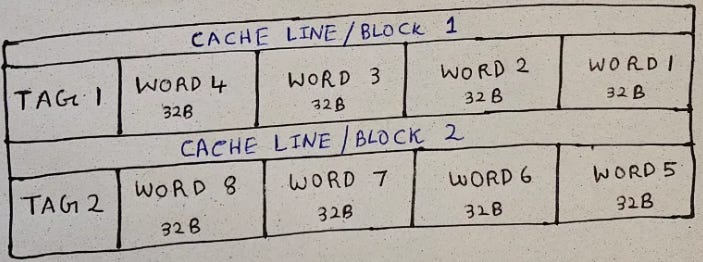 CACHE LINE/BLOCK 1
TAG 1 WORD 4 WORD 3 WORD 2 WORD 1
32B 32B 32B 32B
CACHE LINE/BLOCK 2
TAG 2 WORD 8 WORD 7 WORD 6 WORD 5
32B 32B 32B 32B